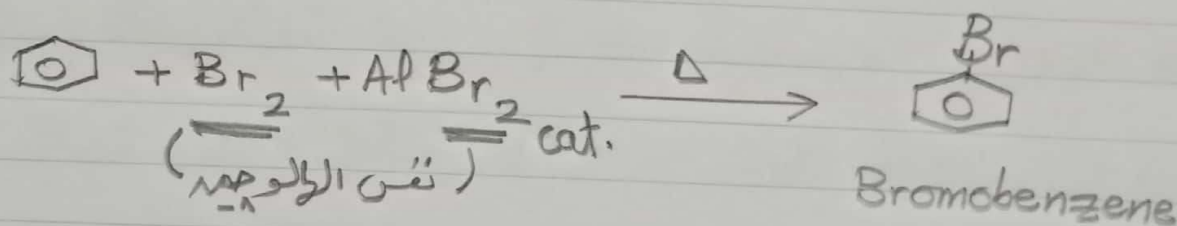 + Br₂ + AlBr₂ cat. Δ Br
(نفس الهالوجين)
Bromobenzene